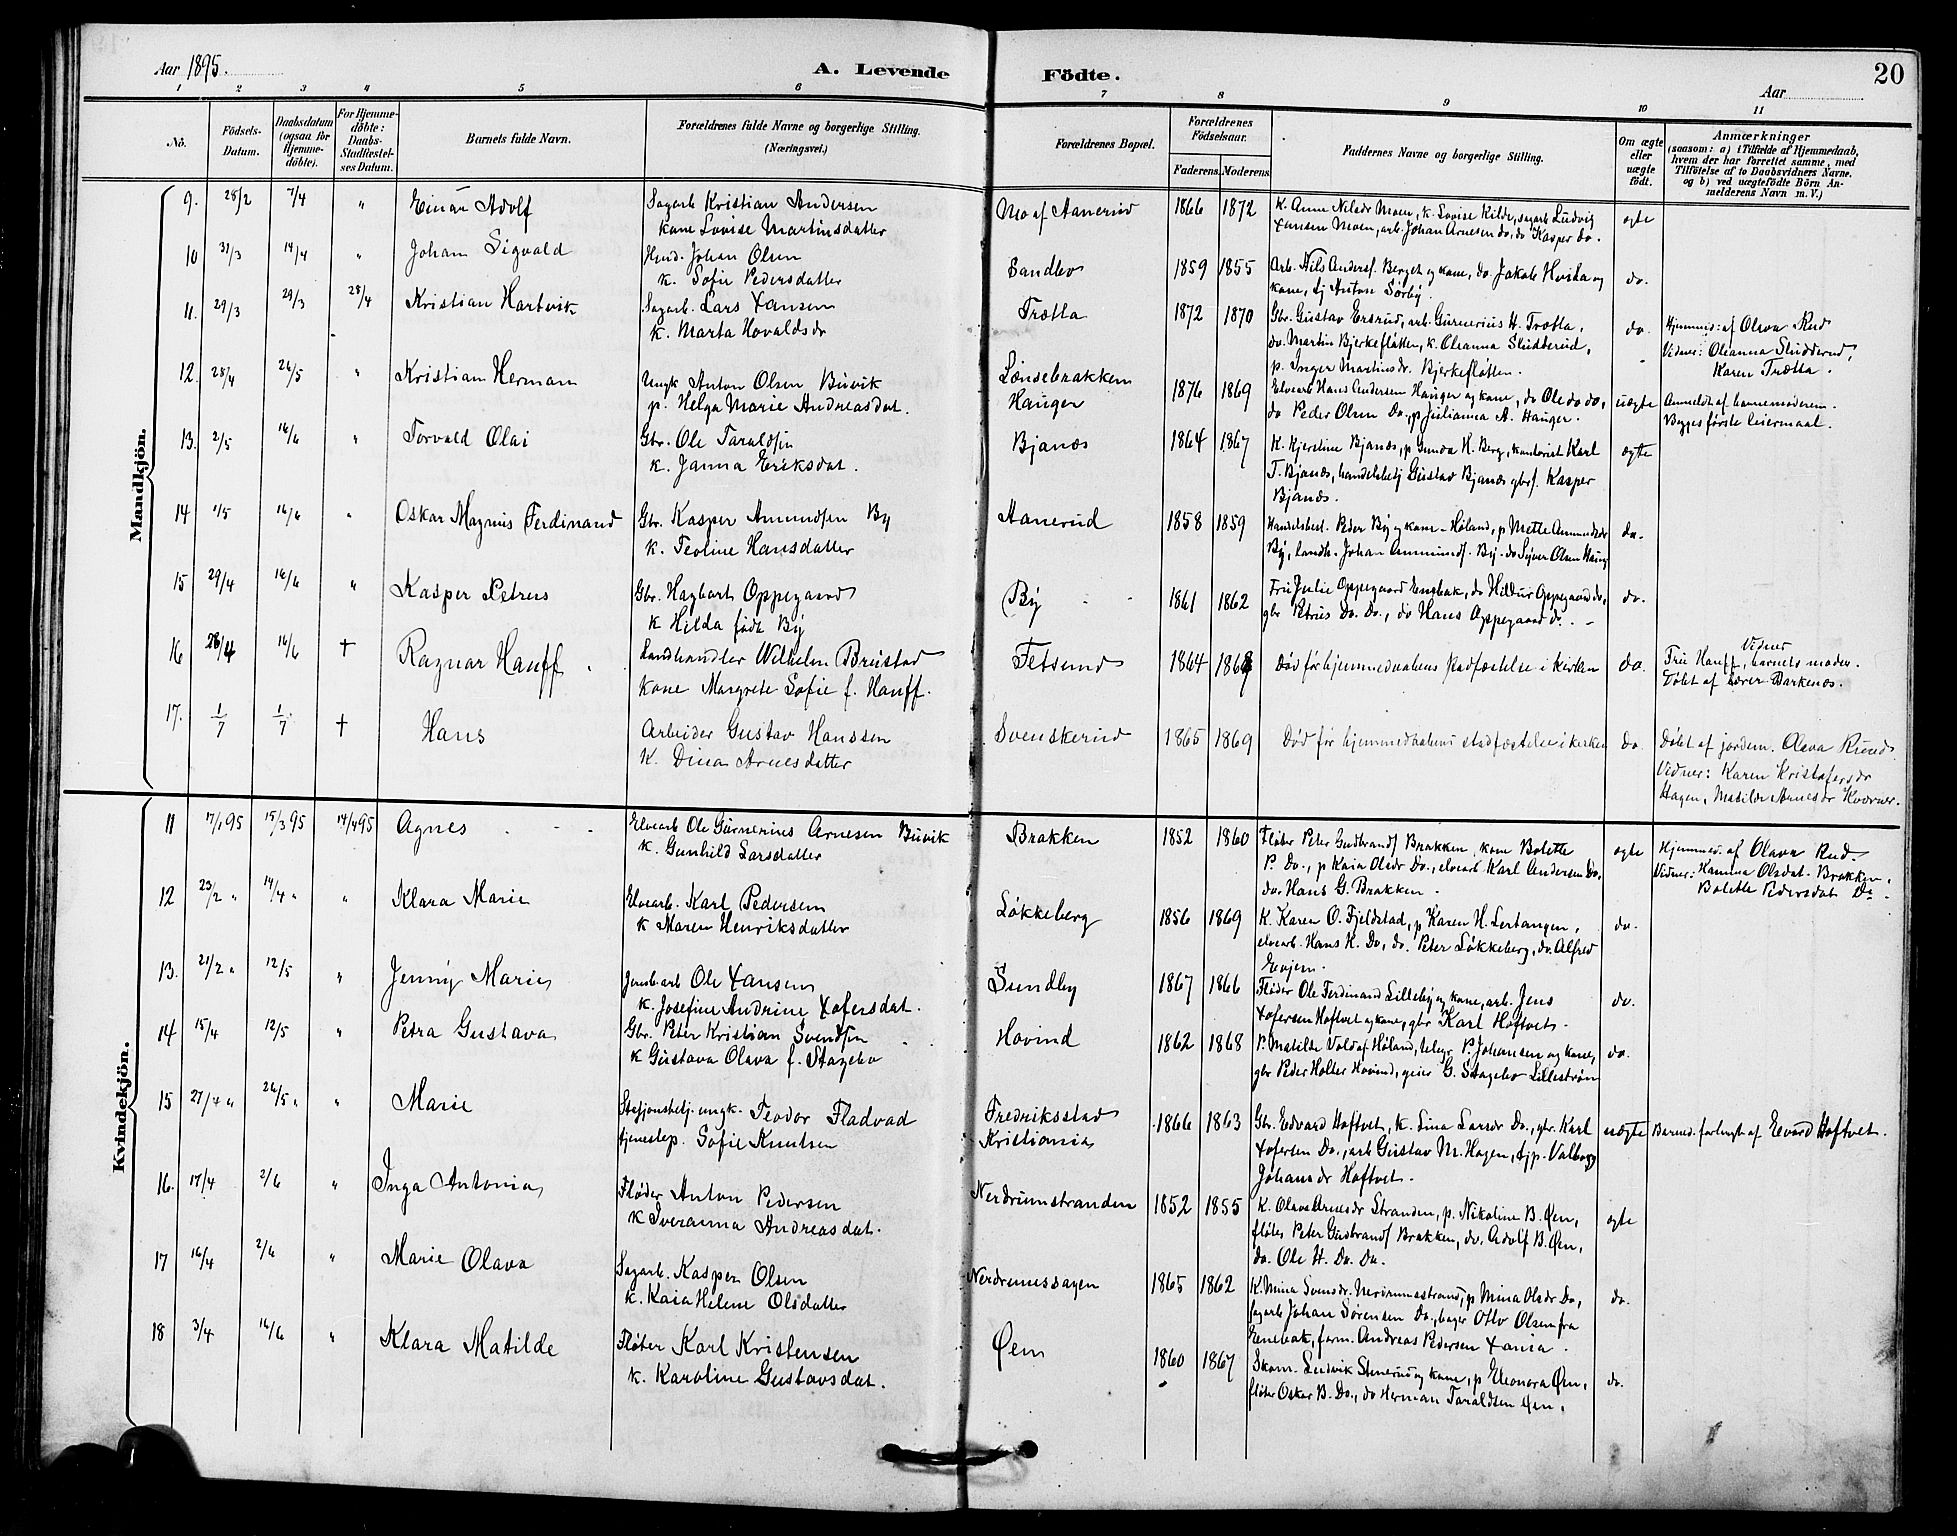 Aar 1895.
A. Levende Födte.
20
Aar
1 2 3 4 5 6 7 8 9 10 11
No.
Födsels-Datum.
Daabsdatum (ogsaa for Hjemme-döbte).
For Hjemme-döbte: Daabs-Stadfæstel-ses Datum.
Barnets fulde Navn.
Forældrenes fulde Navne og borgerlige Stilling. (Næringsvei.)
Forældrenes Bopæl.
Forældrenes Födselsaar.
Faderens. Moderens.
Faddernes Navne og borgerlige Stilling.
Om ægte eller uægte födt.
Anmærkninger
(saasom: a) i Tilfælde af Hjemmedaab,
hvem der har forrettet samme, med
Tilföielse af to Daabsvidners Navne.
og b) ved uægtefödte Börn An-
melderens Navn m. V.)
Mandkjön.
9. 28/2 7/4 " Einar Adolf
Sagarb Kristian Andersen
kone Lovise Martinsdatter
Mo af Hanerud 1866 1872
K. Anne Nilsdr Moen, k. Lovise Kilde, sagarb Ludvig
Hansen Moen, arb. Johan Arnesen do, do Kasper do.
egte
10 31/3 14/4 " Johan Sigvald
Husd. Johan Olsen
k. Sofie Pedersdatter
Sandbo 1859 1855
Arb. Nils Anders. Berget og kone, do. Jakob Hvisla og
kone, tj Anton Sörby.
do.
11. 29/3 29/3 28/4 Kristian Hartvik
Sagarb. Lars Hansen
k. Marta Hovaldsdr
Trætta 1872 1870
Gbr. Gustav Ersrud, arb. Gurnerius H. Trætta,
do. Martin Bjerkefløtten, k. Oleanna Sludderud,
p. Inger Martinsdr. Bjerkefløtten.
do.
Hjemmed: af Olava Rud
Vidner: Oleanna Sludderud,
Karen Trætta.
12. 28/4 26/5 " Kristian Herman
Ungk Anton Olsen Buvik
p. Helga Marie Andreasdat.
Löndebrakken
Hauger
1876 1869
Elvearb Hans Andersen Hauger og kone, do Ole do do,
do Peder Olsen Do., p Julianna A. Hauger.
uegte
Anmeldt af barnemoderen.
Begges første leiermaal.
13. 2/5 16/6 " Torvald Olai
Gbr. Ole Taraldsen
k. Janna Eriksdat.
Bjanæs 1864 1867
K. Kjerstine Bjanæs, p Gunda H. Berg, kontorist Karl
T. Bjanæs, handelsbetj Gustav Bjanæs gbrs. Kasper
Bjanæs.
ægte
14 1/5 16/6 " Oskar Magnus Ferdinand
Gbr. Kasper Amundsen By
k. Teoline Hansdatter
Hanerud 1858 1859
Handelsbest. Peder By og kone - Høland, p Mette Amundsdr
By, landh. Johan Ammunds. By. do Syver Olsen Haug
do.
15 29/4 16/6 " Kasper Petrus
Gbr. Hagbart Oppegaard
k Hilda född By
By 1861 1862
Fru Julie Oppegaard Enebak, do Hildur Oppegaard do,
gbr Petrus Do. Do., do Hans Oppegaard do.
do.
16 28/4 16/6 † Ragnar Hauff
Landhandler Wilhelm Brustad
kone Margrete Sofie f. Hauff.
Fetsund 1864
Død för hjemmedaabens stadfæstelse i kirken
do.
Vidner
Fru Hauff, barnets moder.
Döbt af lærer Barkenæs.
17. 1/7 1/7 † Hans
Arbeider Gustav Hanssen
K. Dina Arnesdatter
Svenskerud 1865 1869
Død før hjemmedaabens stadfæstelse i kirken
do.
Döbt af jordem. Olava Ruud
Vidner: Karen Kristofersdr
Hagen, Matilde Arnesdr Kværner.
Kvindekjön.
11 17/1 95 15/3 95 14/4 95 Agnes
Elvearb Ole Gurnerius Arnesen Buvik
k. Gunhild Larsdatter
Brakken 1852 1860
Fløter Peter Gudbrands Brakken, kone Bolette
P. Do., p Kaia Olsdr Do., elvearb Karl Andersen Do,
do. Hans G. Brakken.
egte
Hjemmed. af Olava Rud.
Vidner: Hanna Olsdat. Brakken,
Bolette Pedersdat Do.
12 23/2 " 14/4 " " Klara Marie
Elvearb. Karl Pedersen
k Maren Henriksdatter
Løkkeberg 1856 1869
K Karen O. Fjeldstad, p Karen H. Lertangen,
elvearb. Hans H. Do, do. Peter Løkkeberg, do. Alfred
Evjen.
do.
13. 21/2 " 12/5 " Jenny Marie
Jernb arb Ole Hansen
k. Josefine Andrine Xofersdat.
Sundby 1867 1866
Fløder Ole Ferdinand Lilleby og kone, arb. Jens
Xofersen Hoftvet og kone, gbr Karl Hoftvet.
do.
14 15/4 12/5 " Petra Gustava
Gbr. Peter Kristian Svendsen
k Gustava Olava f. Stagebo
Hovind 1862 1868
P. Matilde Vold af Høland, telegr P. Johansen og kone,
gbr Peder Holter Hovind, geier G. Stagebo Lillestrøm
do.
15 27/4 " 26/5 " " Marie
Stasjonsbetj. ungk. Teodor Fladvad
tjenestep. Sofie Knutsen
Fredriksstad
Kristiania
1866 1863
Gbr. Edvard Hoftvet, k. Lina Larsdr Do., gbr. Karl
Xofersen Do., arb Gustav M. Hagen, tjp. Valborg
Johansdr Hoftvet.
uegte
Barnef. forlangt af Evard Hoftvet.
16. 17/4 2/6 " Inga Antonia
Fløder Anton Pedersen
k Iveranna Andreasdat.
Nerdrumstranden 1852 1855
K. Olava Arnesdr Stranden, p. Nikoline B. Øen,
fløter Peter Gudbrands Brakken, do. Adolf B. Øen,
do. Ole H. Do. Do.
egte
17 16/4 2/6 " Marie Olava
Sagarb. Kasper Olsen
k. Kaia Helene Olsdatter
Nerdrumssagen 1865 1862
K. Mina Svensdr. Nerdrumsstrand, p Mina Olsdr Do,
sagarb Johan Sörensen Do., bager Otto Olsen fra
Enebak, farm. Andreas Pedersen Xania.
do.
18 3/4 16/6 " Klara Matilde
Fløter Karl Kristensen
k. Karoline Gustavsdat.
Øen 1860 1867
Skom. Ludvik Stenerud og kone, p Eleonora Øen,
fløter Oskar B. Do., do Herman Taraldsen Øen.
do.